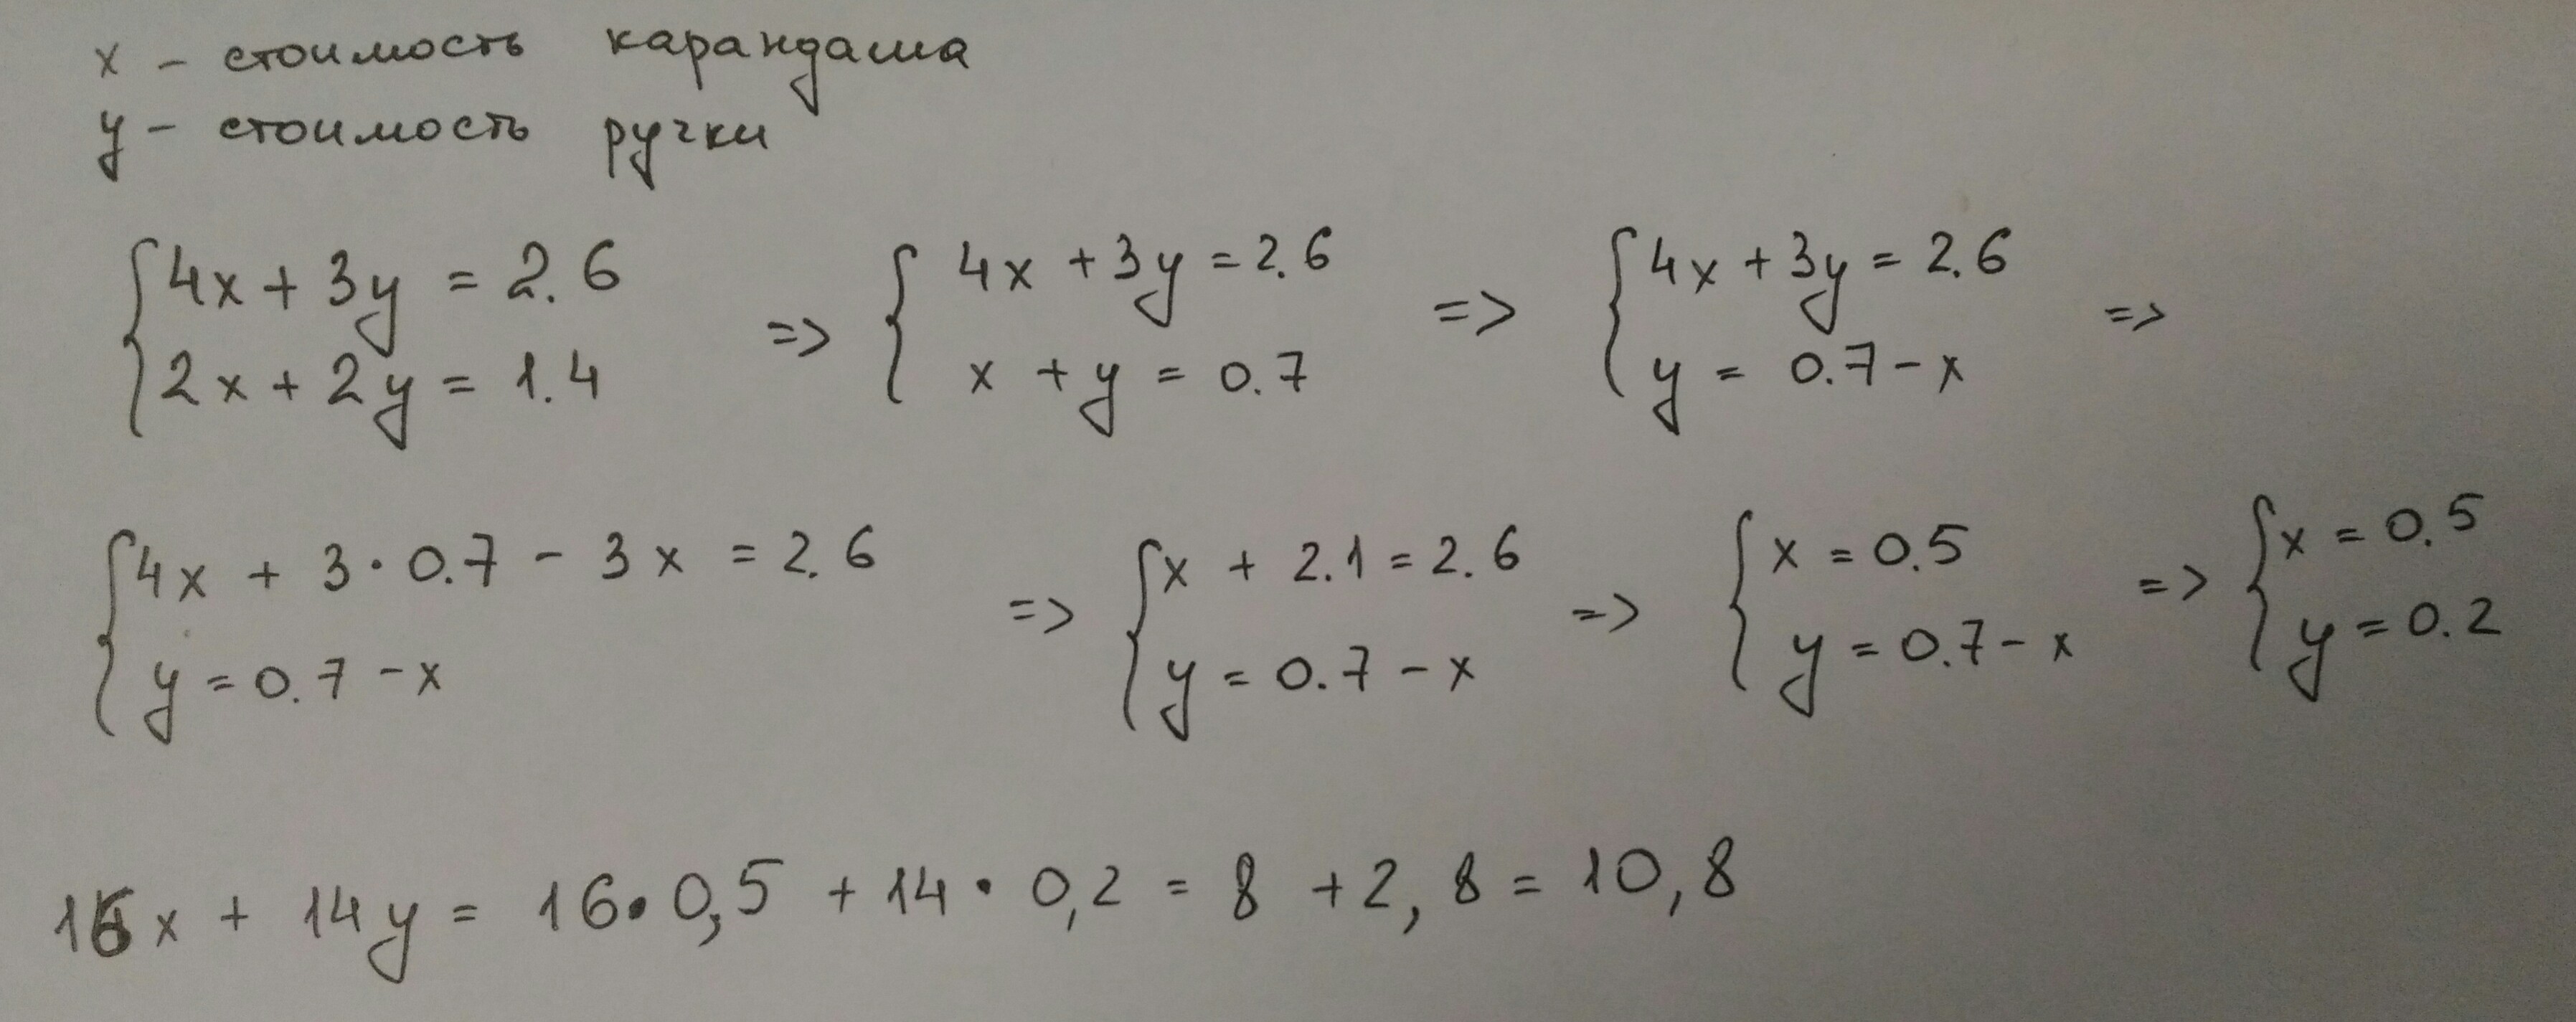 x - стоимость карандаша
y - стоимость ручки
{ 4x + 3y = 2.6 => { 4x + 3y = 2.6 => { 4x + 3y = 2.6 =>
2x + 2y = 1.4 x + y = 0.7 y = 0.7 - x
{ 4x + 3 · 0.7 - 3x = 2.6 => { x + 2.1 = 2.6 => { x = 0.5 => { x = 0.5
y = 0.7 - x y = 0.7 - x y = 0.7 - x y = 0.2
16x + 14y = 16 · 0,5 + 14 · 0,2 = 8 + 2,8 = 10,8